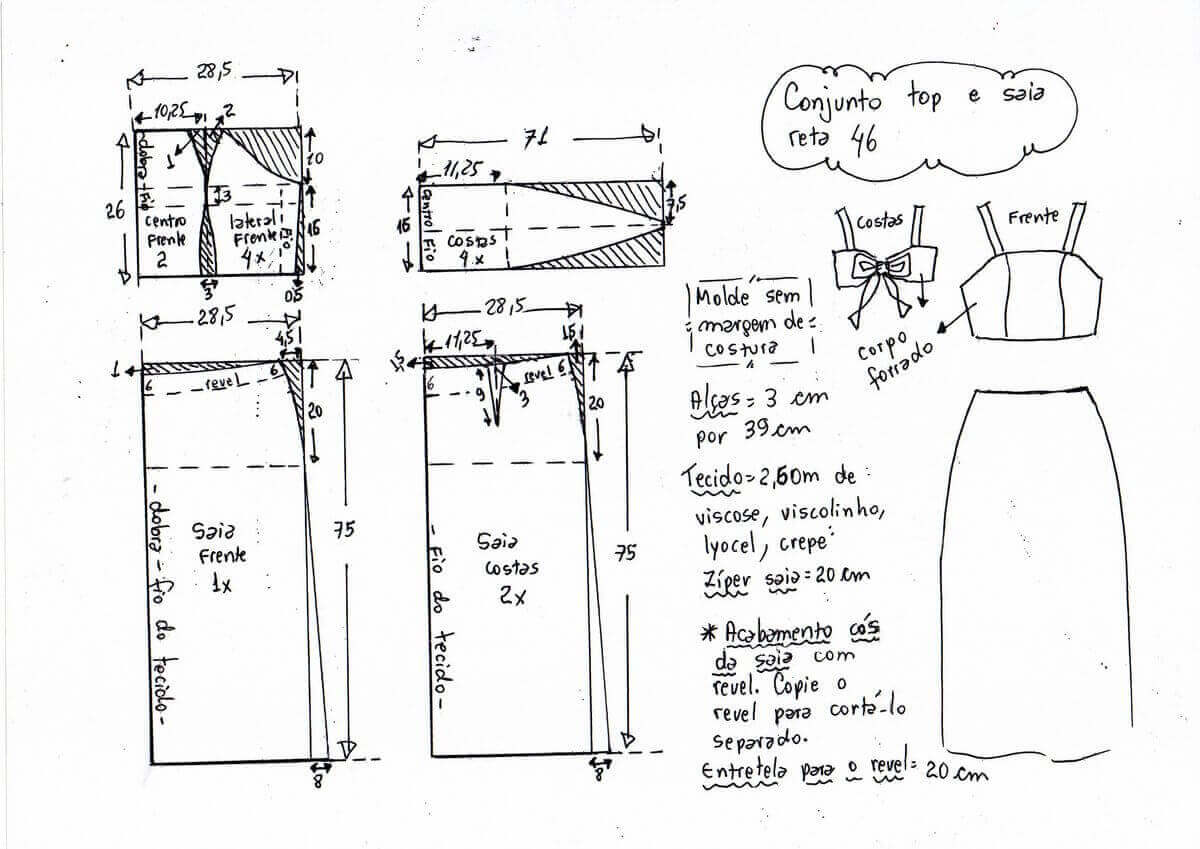 Conjunto top e saia
reta 46
28,5
10,25
2
1
10
3
26
dobra - fio
centro
frente
2
lateral
frente
4x
fio
16
3
0,5
71
11,25
7,5
16
centro
Fio
costas
4x
Costas
Frente
corpo
forrado
Molde sem
margem de
costura
Alças = 3 cm
por 39 cm
Tecido = 2,50m de :
viscose, viscolinho,
lyocel, crepe
Zíper saia = 20 cm
* Acabamento cós
da saia com
revel. Copie o
revel para cortá-lo
separado.
Entretela para o revel = 20 cm
28,5
4,5
1
6
revel
6
20
75
- dobra - fio do tecido -
Saia
Frente
1x
8
28,5
11,25
1,5
15
6
9
3
revel
6
20
75
- Fio do tecido -
Saia
costas
2x
8